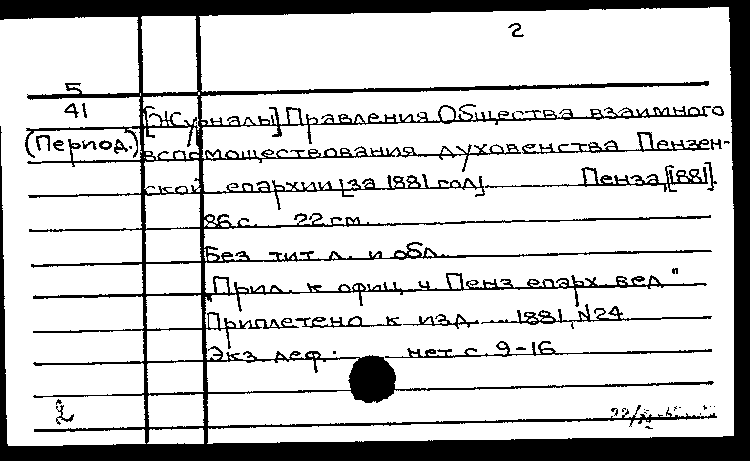 2
5
41
(Период.)
[Журналы] Правления Общества взаимного
вспомоществования духовенства Пензен-
ской епархии [за 1881 год]. Пенза, [1881].
86 с. 22 см.
Без тит. л. и обл.
"Прил. к офиц. ч. Пенз. епарх. вед."
Приплетено к изд. ... 1881, N24
Экз. деф.: нет с. 9-16
2